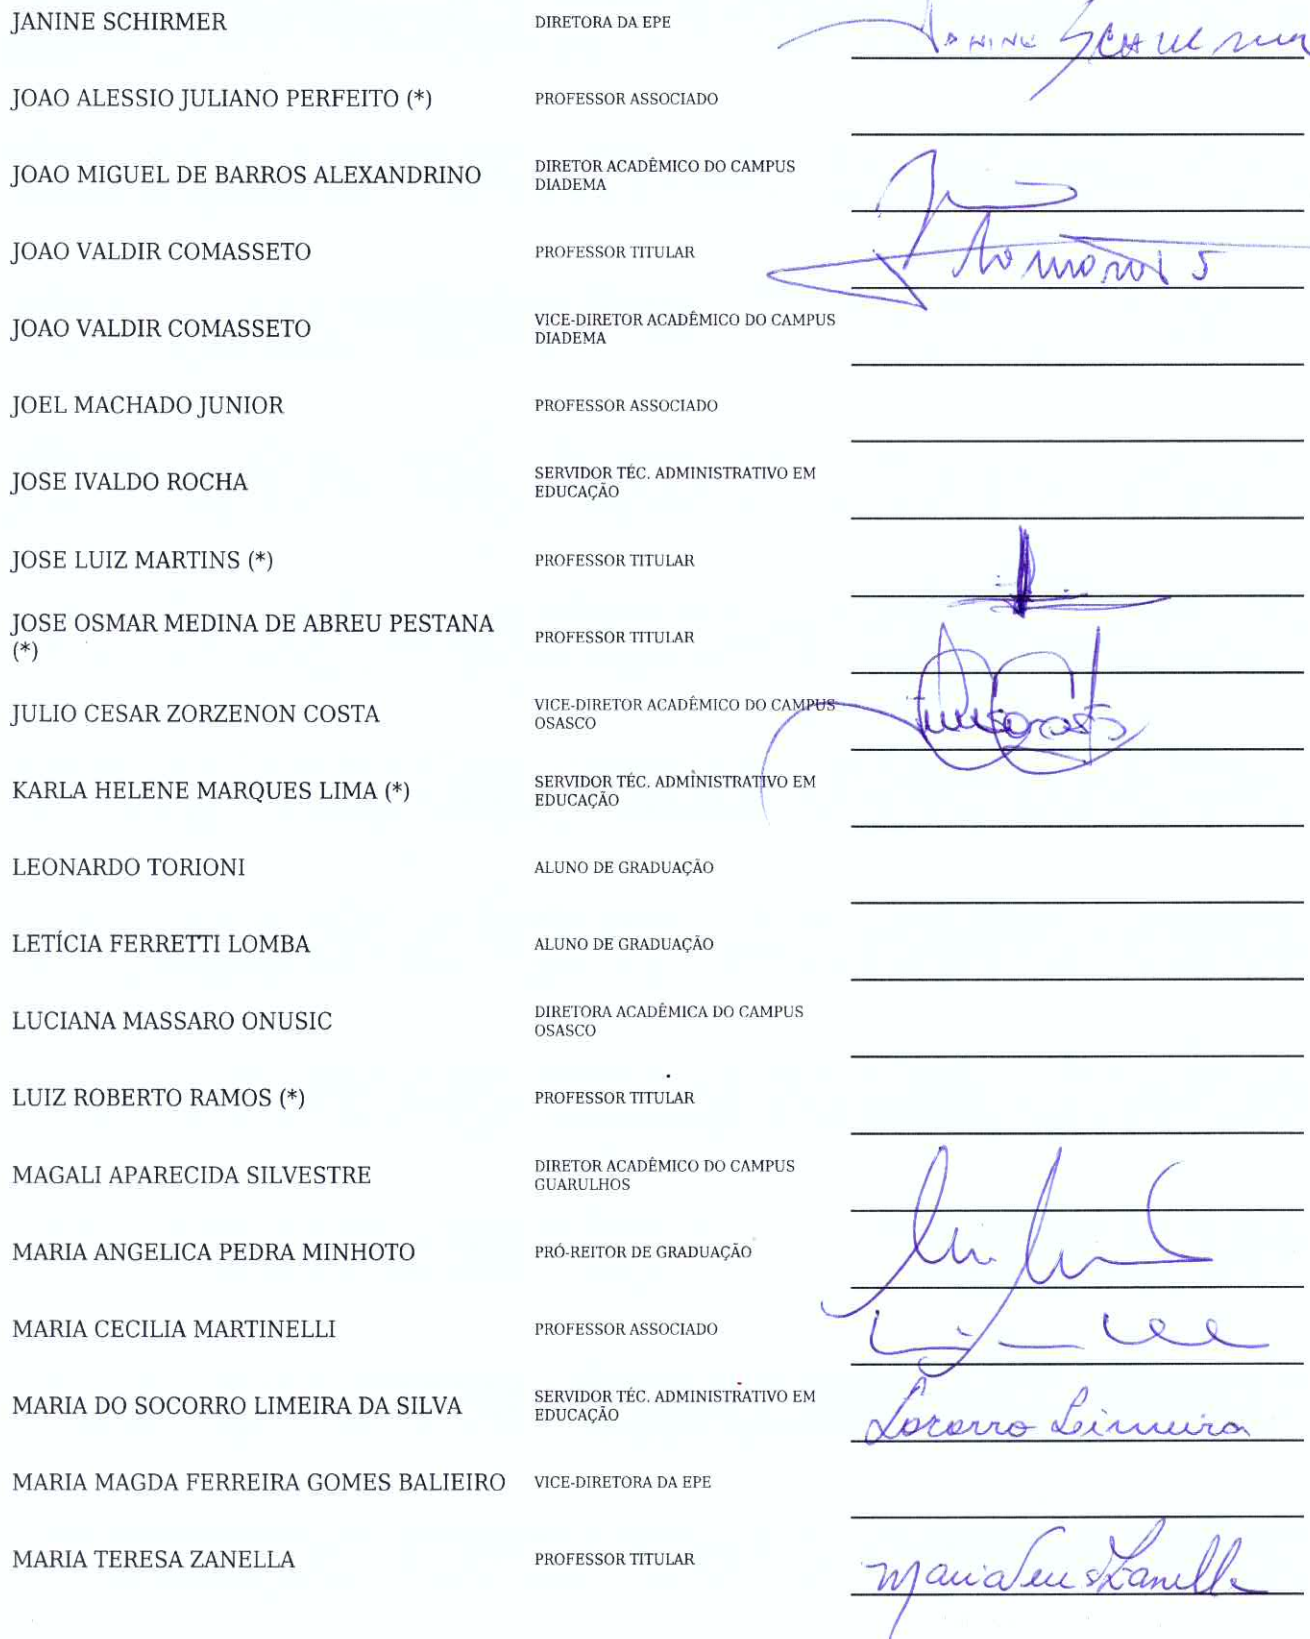 JANINE SCHIRMER DIRETORA DA EPE
JOAO ALESSIO JULIANO PERFEITO (*) PROFESSOR ASSOCIADO
JOAO MIGUEL DE BARROS ALEXANDRINO DIRETOR ACADÊMICO DO CAMPUS
DIADEMA
JOAO VALDIR COMASSETO PROFESSOR TITULAR
JOAO VALDIR COMASSETO VICE-DIRETOR ACADÊMICO DO CAMPUS
DIADEMA
JOEL MACHADO JUNIOR PROFESSOR ASSOCIADO
JOSE IVALDO ROCHA SERVIDOR TÉC. ADMINISTRATIVO EM
EDUCAÇÃO
JOSE LUIZ MARTINS (*) PROFESSOR TITULAR
JOSE OSMAR MEDINA DE ABREU PESTANA
(*) PROFESSOR TITULAR
JULIO CESAR ZORZENON COSTA VICE-DIRETOR ACADÊMICO DO CAMPUS
OSASCO
KARLA HELENE MARQUES LIMA (*) SERVIDOR TÉC. ADMINISTRATIVO EM
EDUCAÇÃO
LEONARDO TORIONI ALUNO DE GRADUAÇÃO
LETÍCIA FERRETTI LOMBA ALUNO DE GRADUAÇÃO
LUCIANA MASSARO ONUSIC DIRETORA ACADÊMICA DO CAMPUS
OSASCO
LUIZ ROBERTO RAMOS (*) PROFESSOR TITULAR
MAGALI APARECIDA SILVESTRE DIRETOR ACADÊMICO DO CAMPUS
GUARULHOS
MARIA ANGELICA PEDRA MINHOTO PRÓ-REITOR DE GRADUAÇÃO
MARIA CECILIA MARTINELLI PROFESSOR ASSOCIADO
MARIA DO SOCORRO LIMEIRA DA SILVA SERVIDOR TÉC. ADMINISTRATIVO EM
EDUCAÇÃO Socorro Limeira
MARIA MAGDA FERREIRA GOMES BALIEIRO VICE-DIRETORA DA EPE
MARIA TERESA ZANELLA PROFESSOR TITULAR